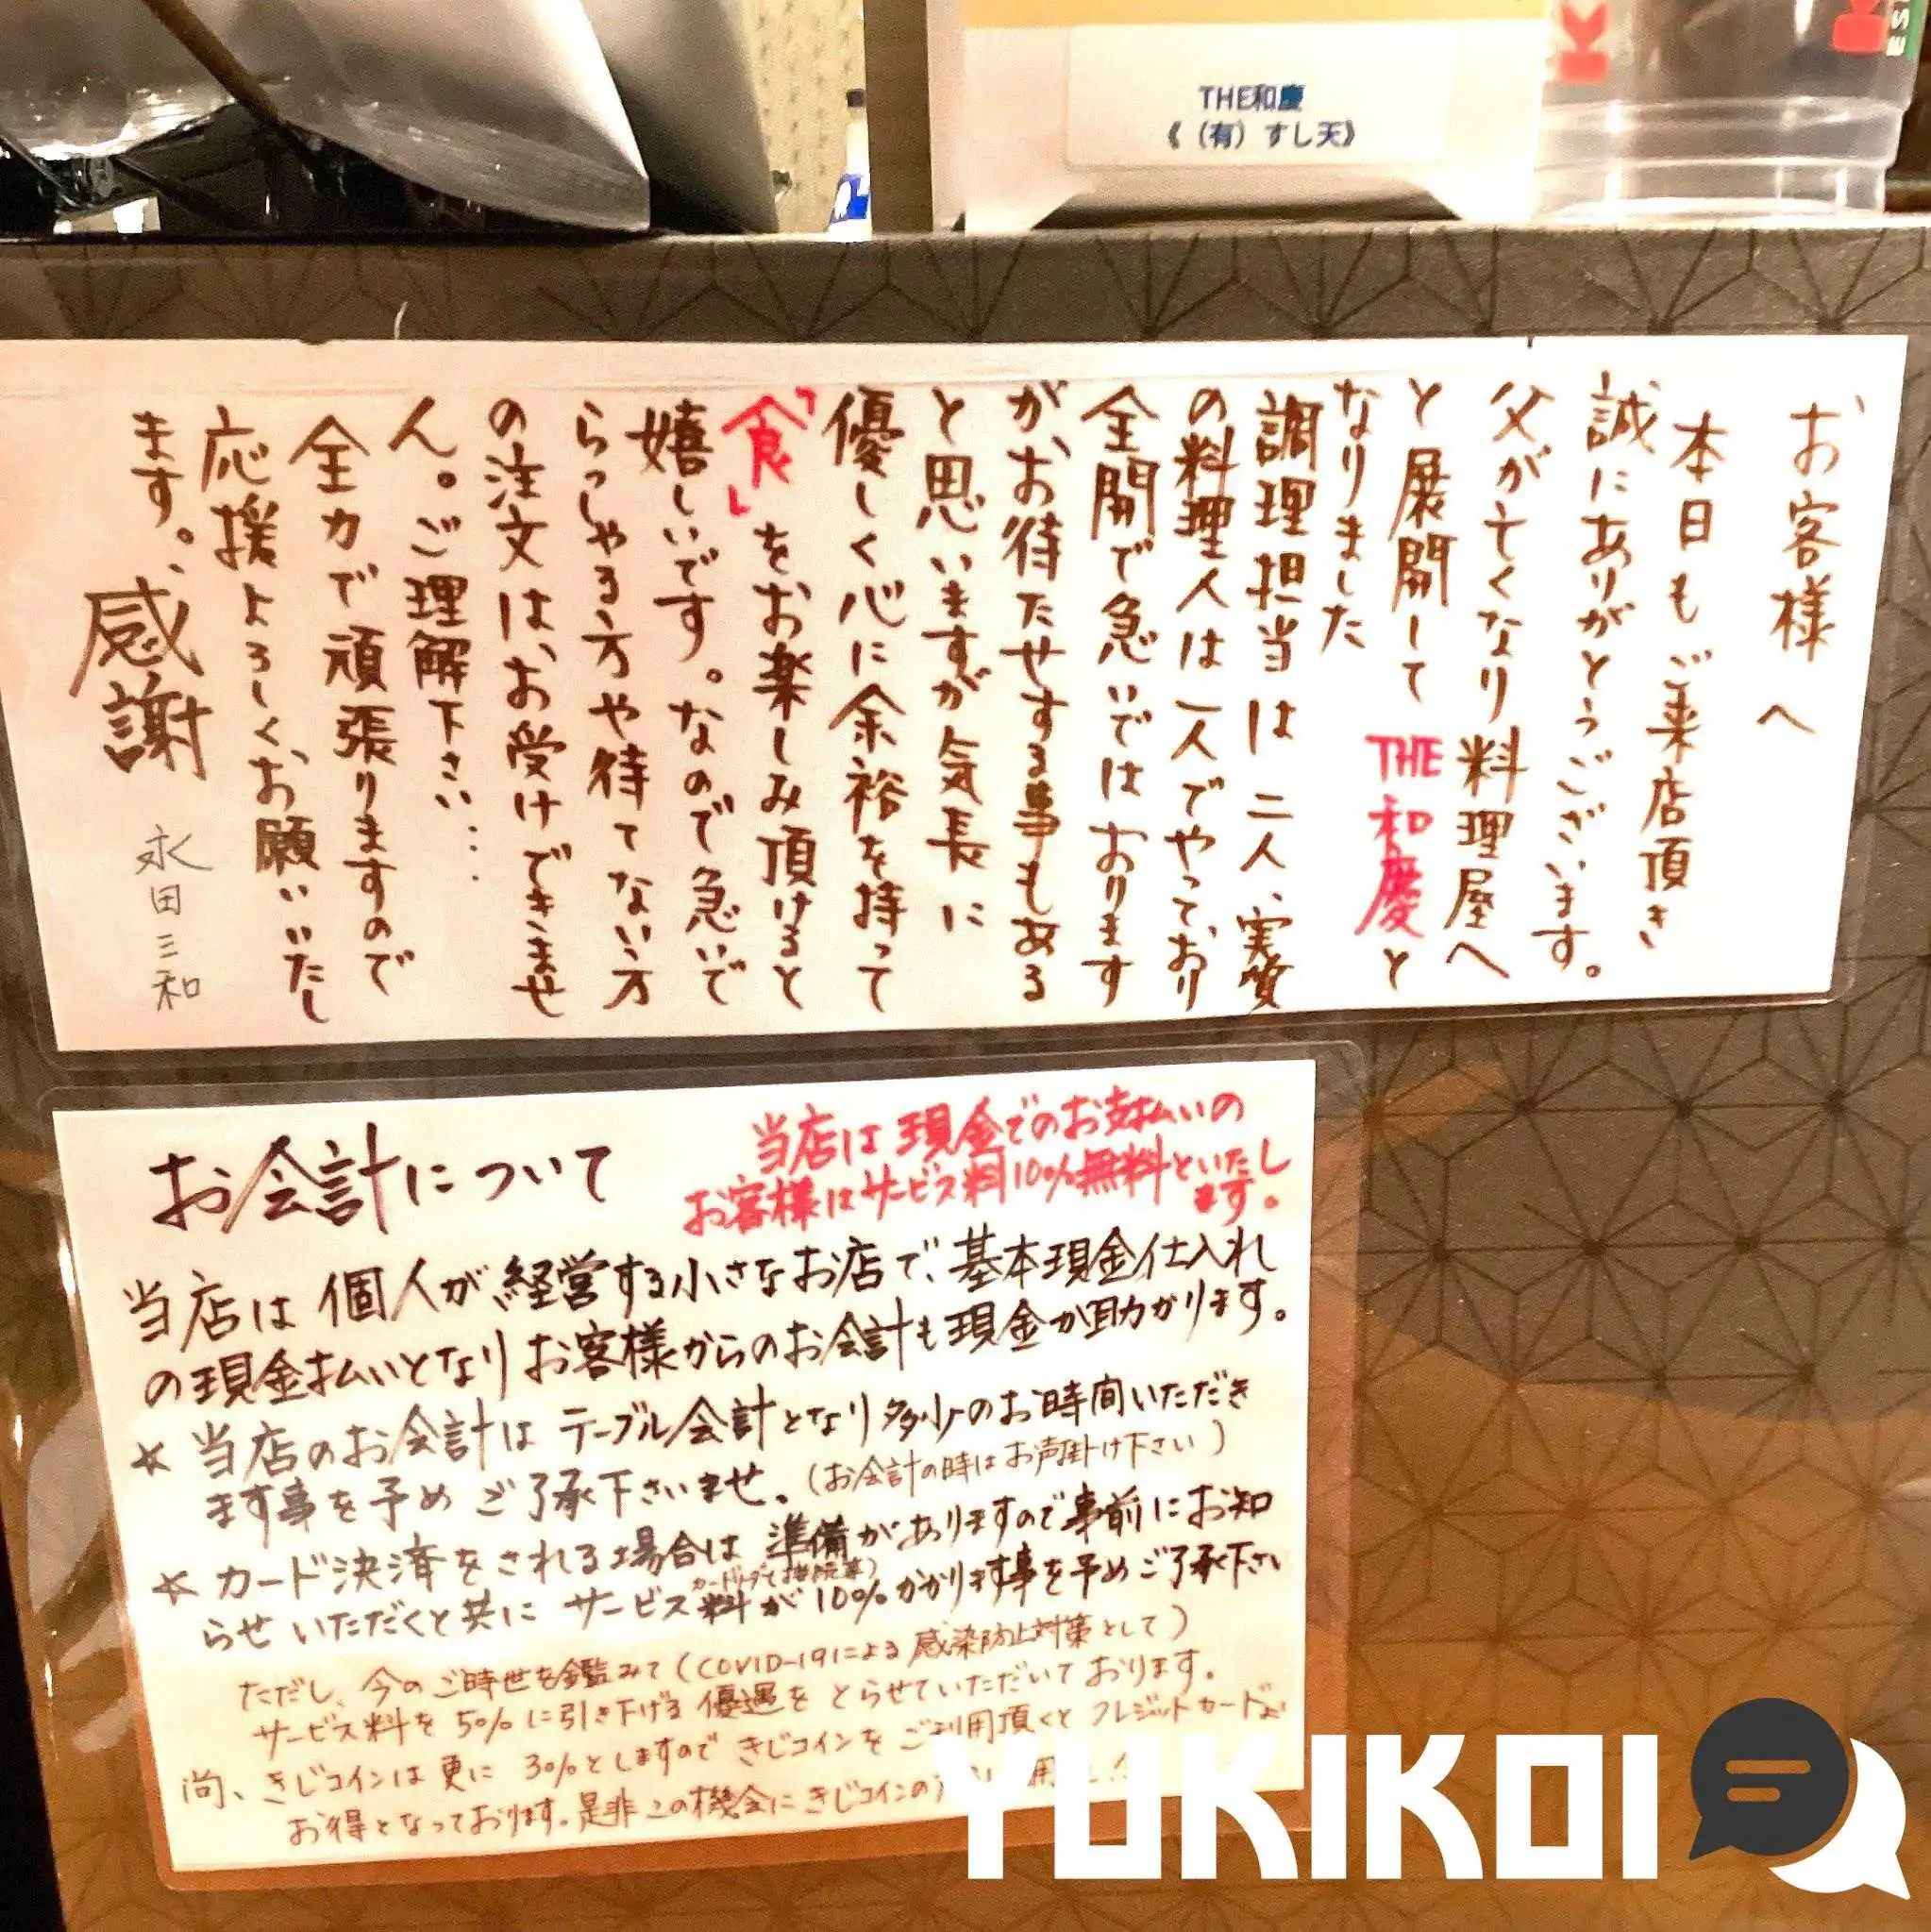 THE和慶
《（有）すし天》
お客様へ
本日もご来店頂き
誠にありがとうございます。
父が亡くなり料理屋へ
と展開して THE和慶と
なりました
調理担当は二人、実質
の料理人は一人でやっており
全開で急いではおります
が、お待たせする事もある
と思いますが気長に
優しく心に余裕を持って
「食」をお楽しみ頂けると
嬉しいです。なので急いで
らっしゃる方や待てない方
の注文は、お受けできませ
ん。ご理解下さい…
全力で頑張りますので
応援よろしくお願いいたし
ます。感謝
永田三和
お会計について
当店は現金でのお支払いの
お客様はサービス料10%無料といたし
ます。
当店は個人が経営する小さなお店で、基本現金仕入れ
の現金払いとなりお客様からのお会計も現金が助かります。
☆ 当店のお会計はテーブル会計となり多少のお時間いただき
ます事を予めご了承下さいませ。(お会計の時はお声掛け下さい)
☆ カード決済をされる場合は準備がありますので事前にお知
らせいただくと共にサービス料が10%かかります事を予めご了承下さい
ただし、今のご時世を鑑みて(COVID-19による感染防止対策として)
サービス料を5%に引き下げる優遇をとらせていただいております。
尚、きじコインは更に3%としますのできじコインをご利用頂くとクレジットカードより
お得となっております。是非この機会にきじコインの
YUKIKOI